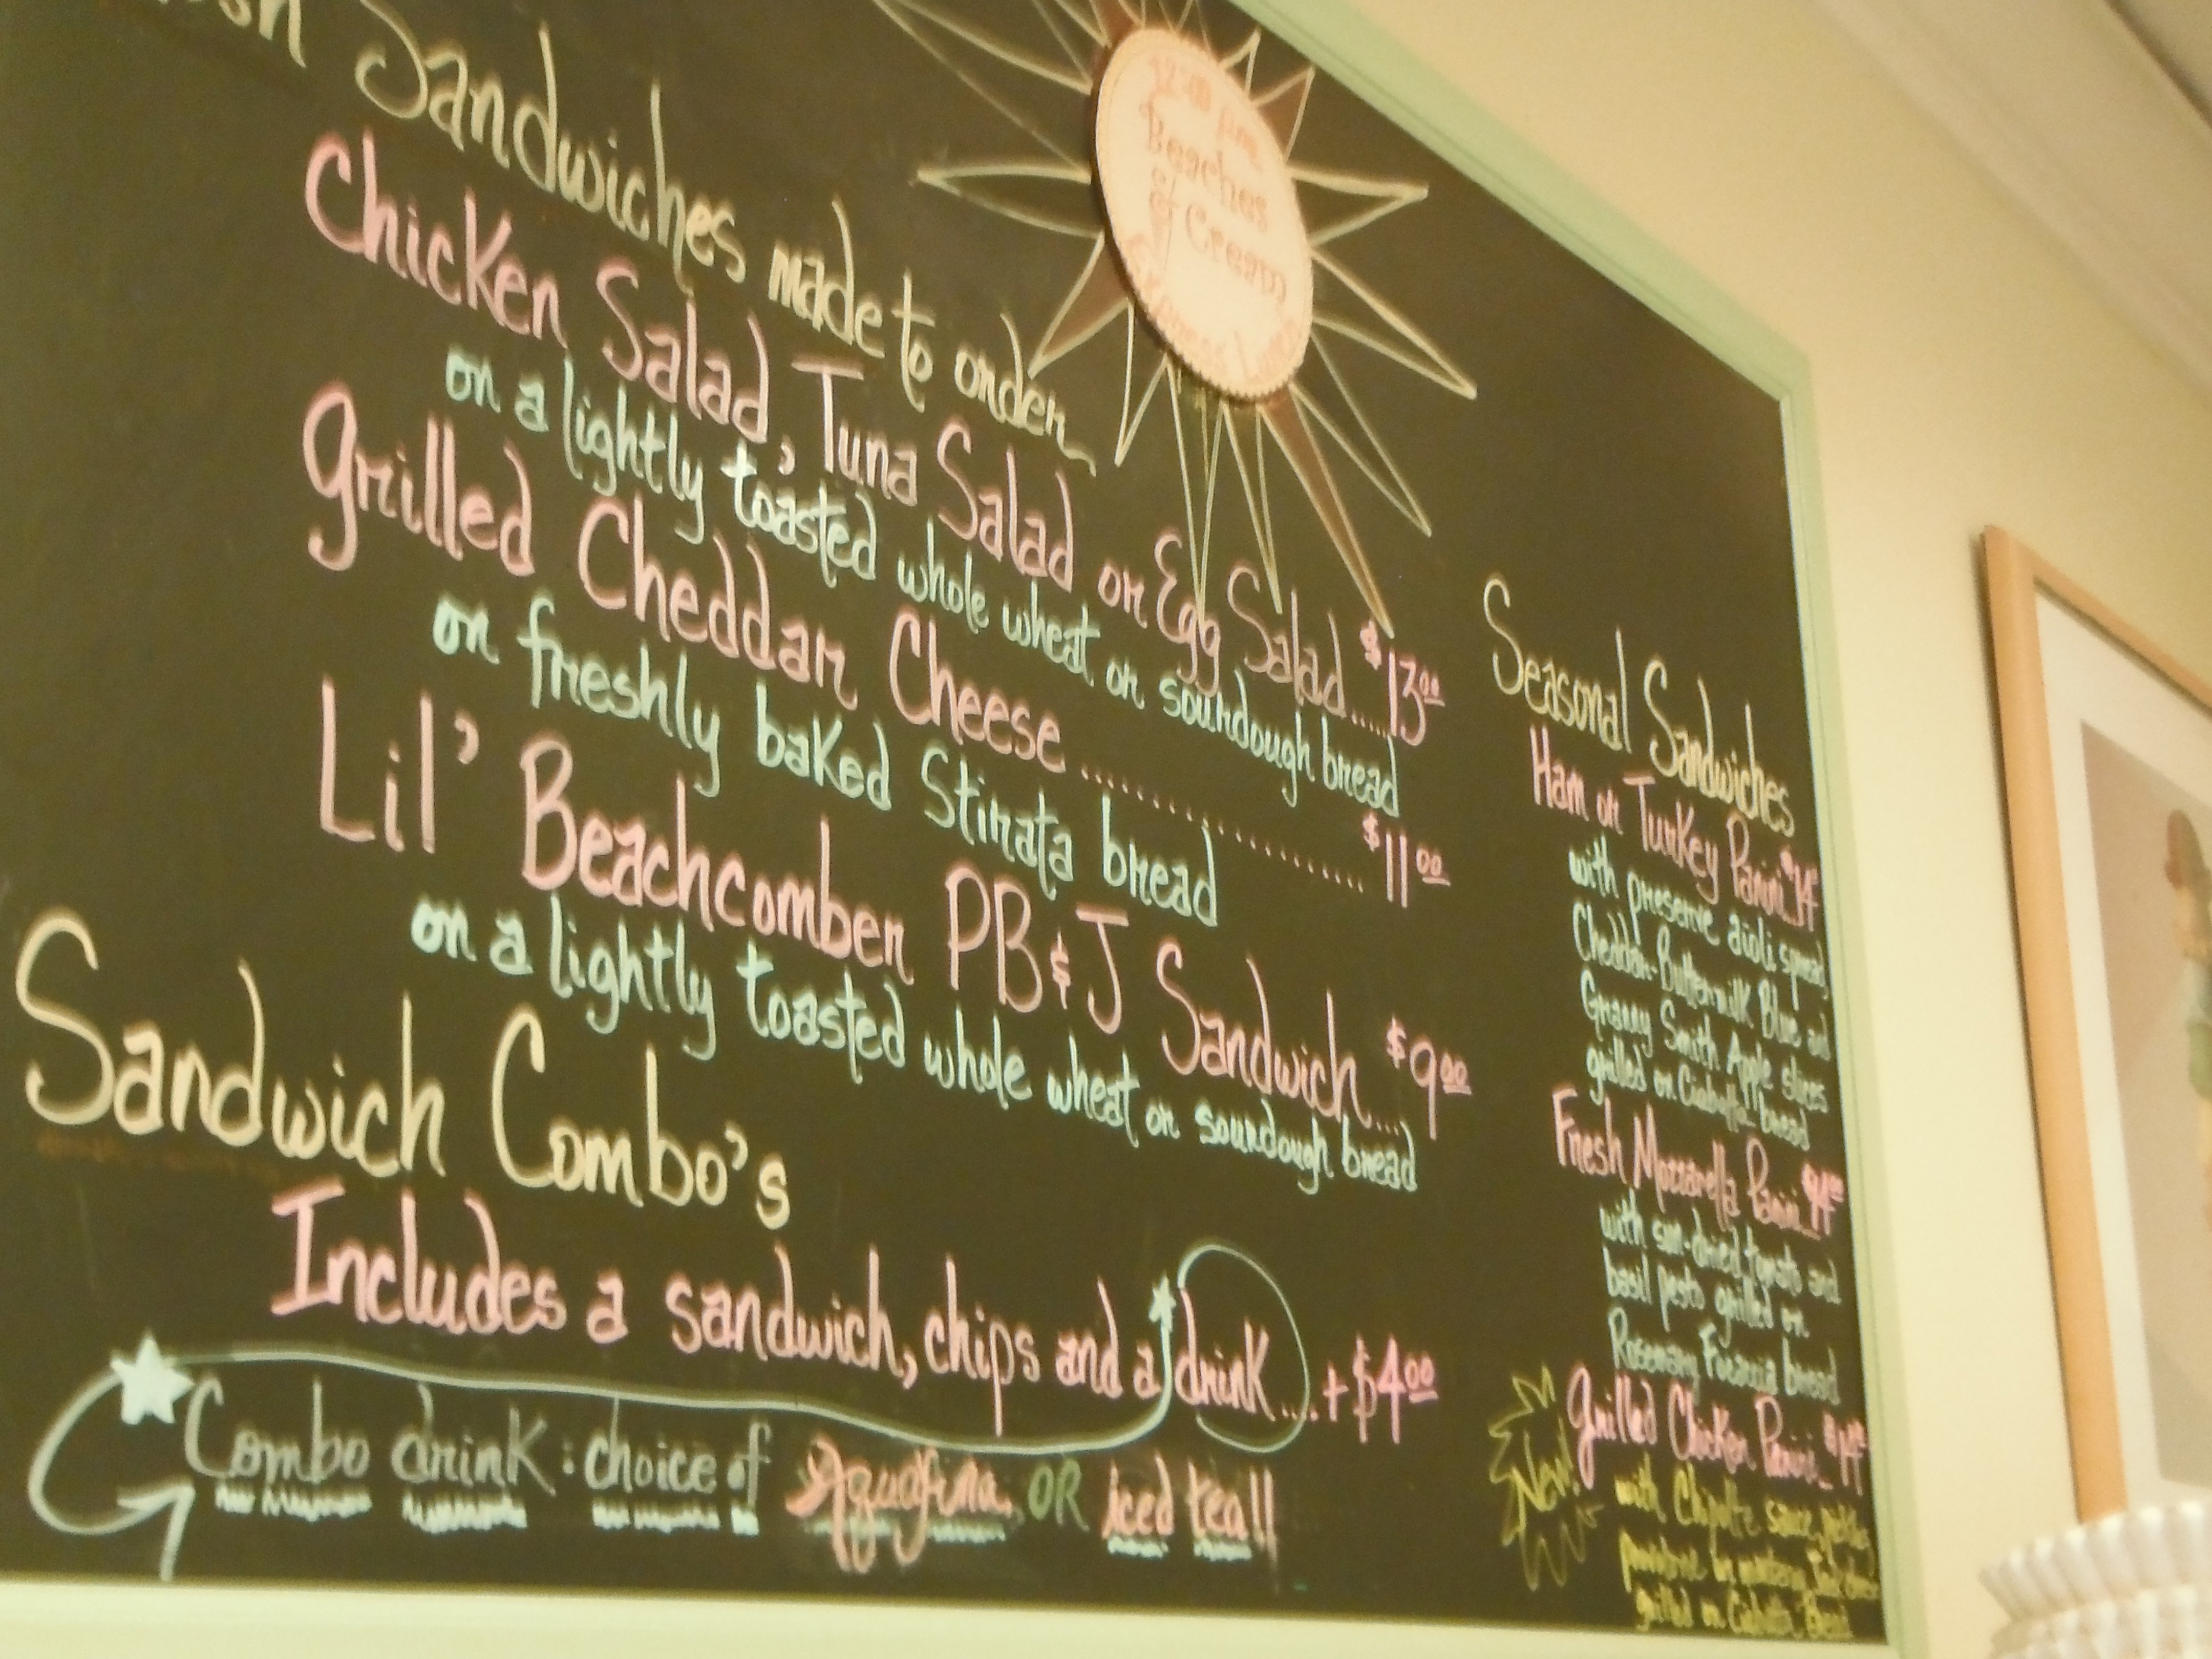 Sandwiches made to order
Chicken Salad, Tuna Salad or Egg Salad.....$13.00
on a lightly toasted whole wheat or sourdough bread
Grilled Cheddar Cheese ....................$11.00
on freshly baked Stirata bread
Lil' Beachcomber PB&J Sandwich....$9.00
on a lightly toasted whole wheat or sourdough bread
Sandwich Combo's
Includes a sandwich, chips and a drink....+$4.00
Combo drink: choice of Aquafina OR iced tea!!
Beaches
of Cream
Seasonal Sandwiches
Ham or Turkey Panini
with preserve aioli spread
Cheddar-Buttermilk Blue and
Granny Smith Apple slices
grilled on Ciabatta bread
Fresh Mozzarella Panini
with sun-dried tomato and
basil pesto grilled on
Rosemary Focaccia bread
New!
Grilled Chicken Panini
with Chipotle sauce
grilled on Ciabatta Bread